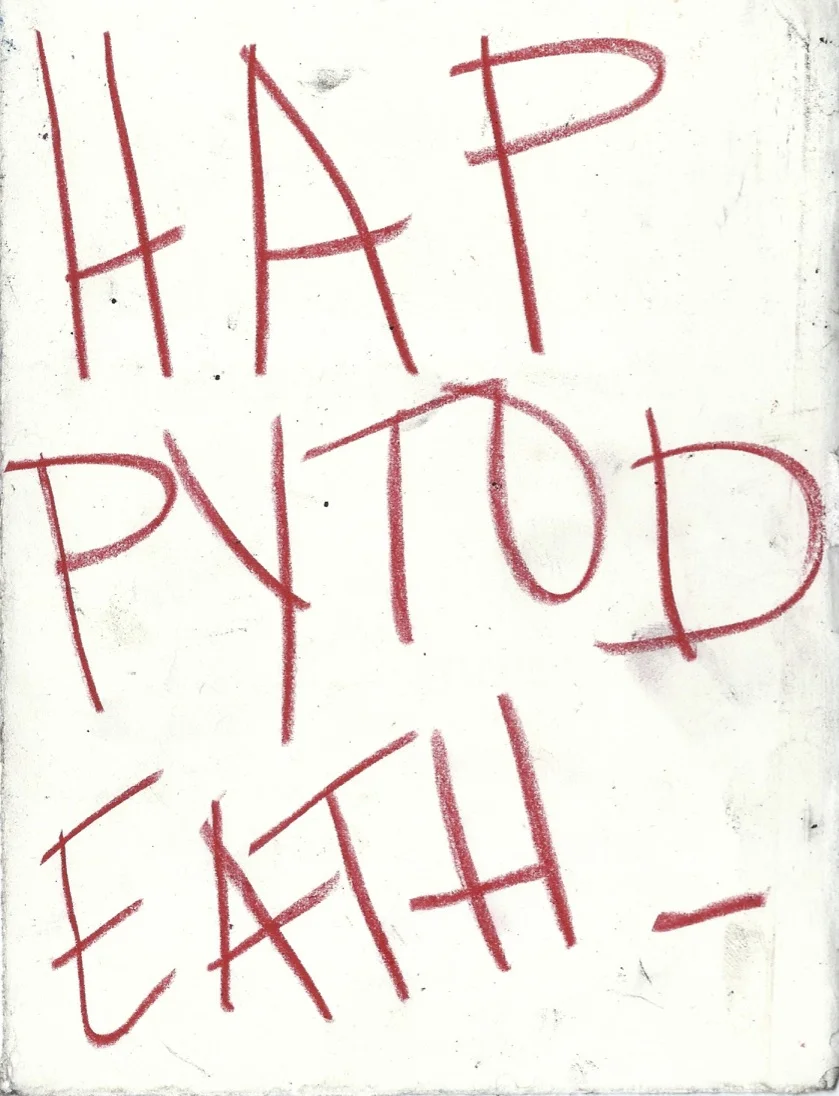 HAP
PYTOD
EATH-